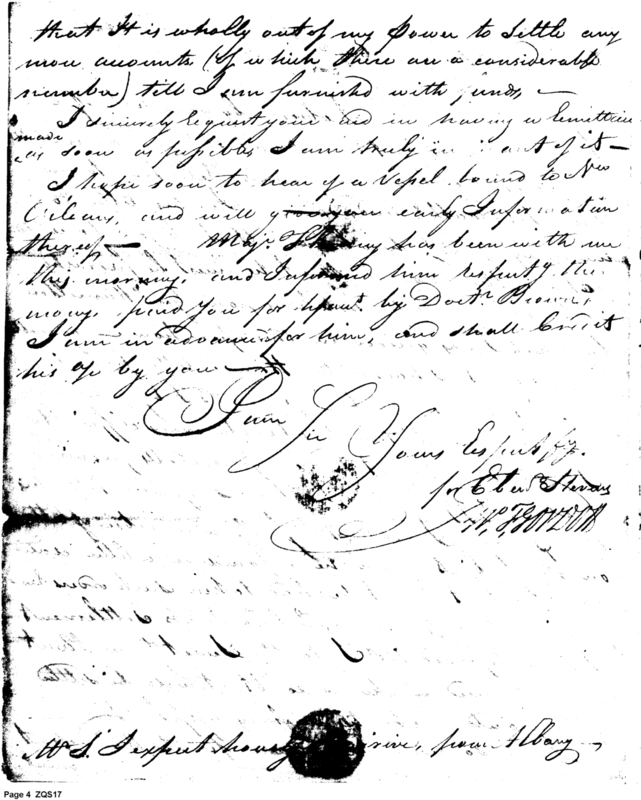 that It is wholly out of my Power to Settle any
more accounts (of which there are a considerable
number) till I am furnished with funds —
I sincerely Request your aid in having a Remittance
made
as soon as possible, I am truly in want of it —
I hope soon to hear of a Vessel bound to New
Orleans, and will give you early Information
thereof — Majr. has been with me
this morning, and I informed him respectg. the
money paid you for his by Doctr. Brown,
I am in advance for him, and shall Credit
his by you —
I am Sir Yours Respectfy.
for Eben Stevens
Mr S. I expect hourly to arrive, from Albany
Page 4 ZQS17